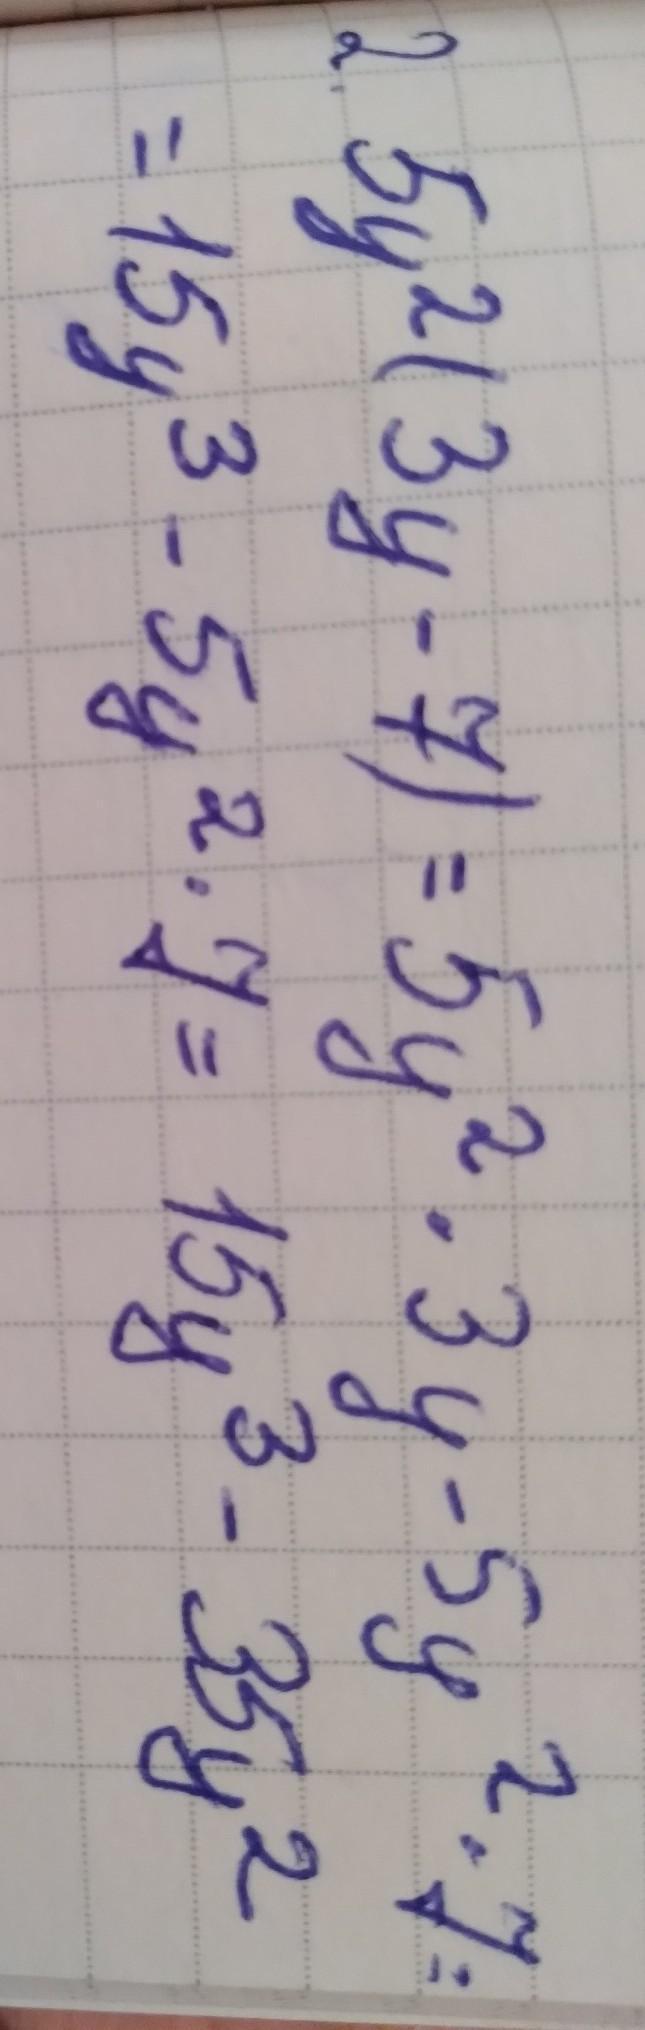 2. 5y²(3y-7)=5y²·3y-5y²·7=
=15y³-5y²·7=15y³-35y²